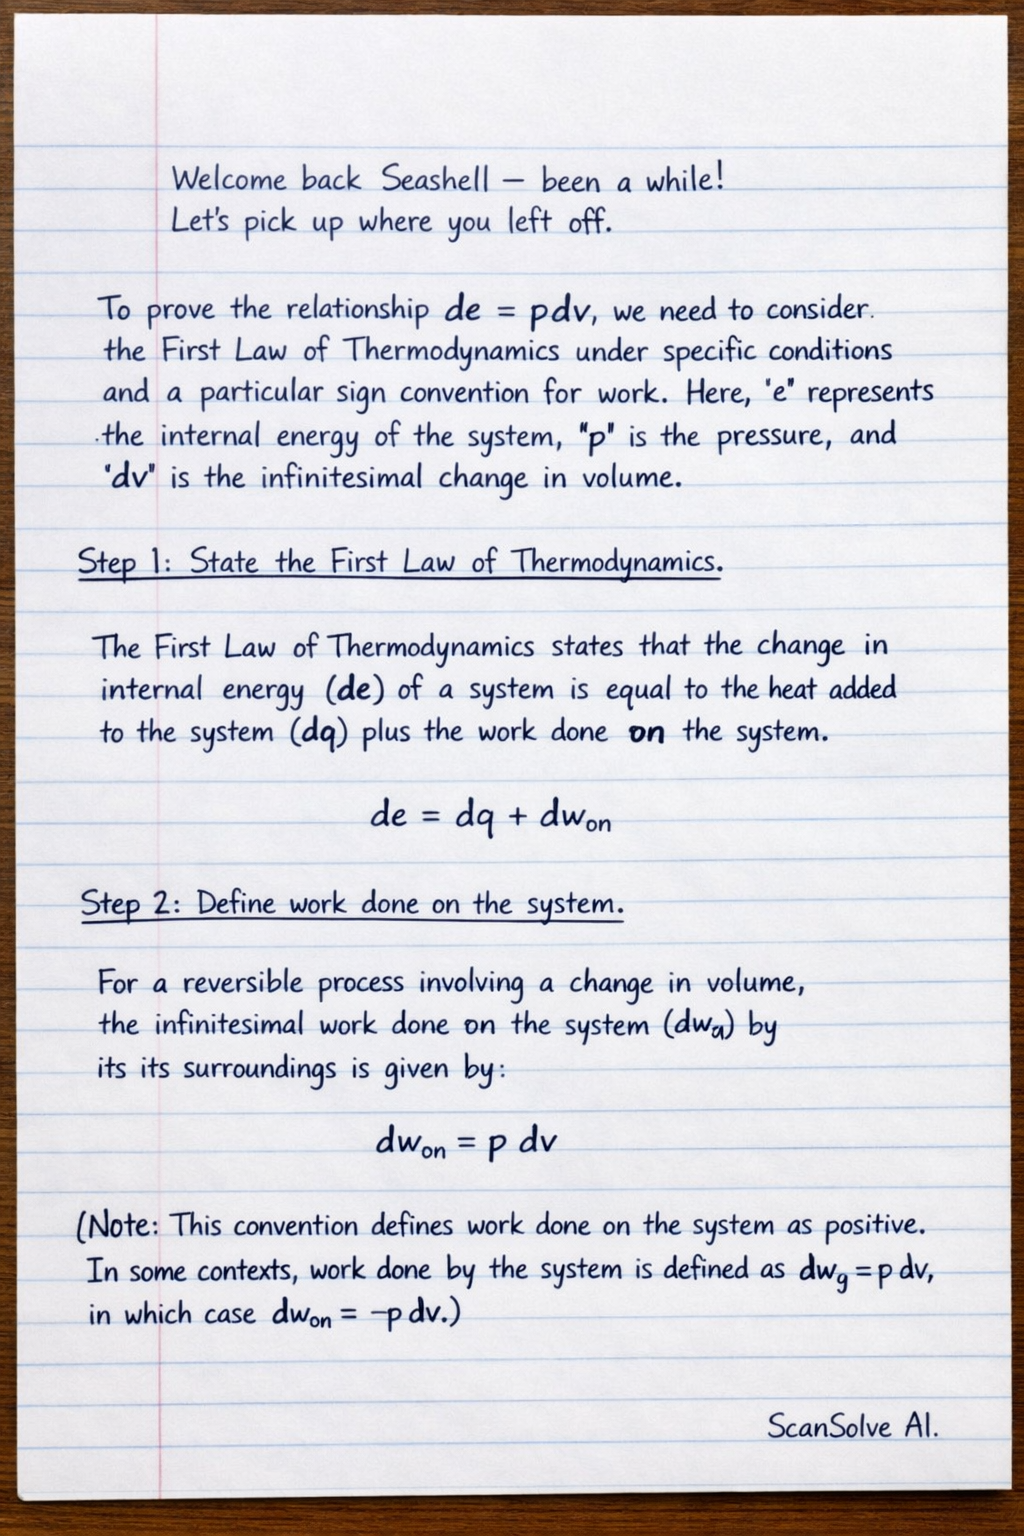 Welcome back Seashell — been a while!
Let's pick up where you left off.
To prove the relationship de = pdv, we need to consider.
the First Law of Thermodynamics under specific conditions
and a particular sign convention for work. Here, 'e" represents
.the internal energy of the system, "p" is the pressure, and
'dv" is the infinitesimal change in volume.
Step 1: State the First Law of Thermodynamics.
The First Law of Thermodynamics states that the change in
internal energy (de) of a system is equal to the heat added
to the system (dq) plus the work done on the system.
de = dq + dw_on
Step 2: Define work done on the system.
For a reversible process involving a change in volume,
the infinitesimal work done on the system (dw_a) by
its its surroundings is given by:
dw_on = p dv
(Note: This convention defines work done on the system as positive.
In some contexts, work done by the system is defined as dw_g = p dv,
in which case dw_on = -p dv.)
ScanSolve AI.